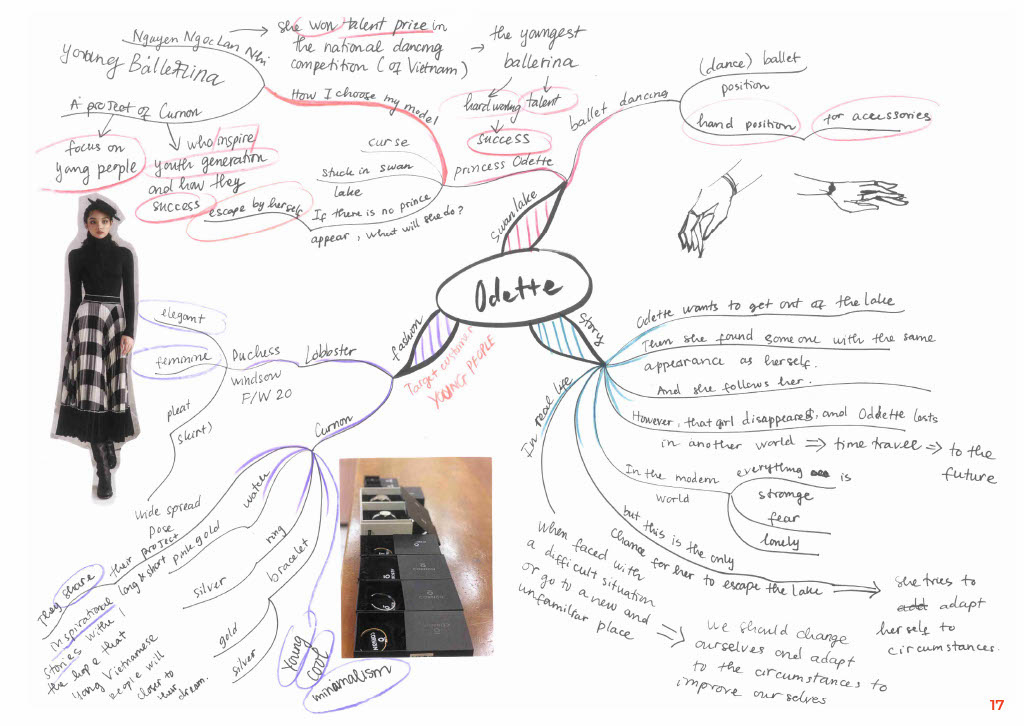 Odette
Swan lake
princess Odette
curse
stuck in swan
lake
If there is no prince
appear, what will she do?
escape by herself
How I choose my model
Young Ballerina
Nguyen Ngoc Lan Nhi
she won talent prize in
the national dancing
competition (of Vietnam)
the youngest
ballerina
hard working
talent
success
A project of Curnon
focus on
yong people
who inspire
youth generation
and how they
success
ballet dancing
(dance) ballet
position
hand position
for acessories
Story
Odette wants to get out of the lake
Then she found someone with the same
appearance as herself.
And she follows her.
However, that girl disappeares, and Oddette losts
in another world ⇒ time travel ⇒ to the
future
In the modern
world
everything is
strange
fear
lonely
but this is the only
chance for her to escape the lake
she tries to
add adapt
herself to
circumstances.
In real life
When faced with
a difficult situation
or go to a new and
unfamiliar place
we should change
ourselves and adapt
to the circumstances to
improve ourselves
fashion
Target customer
YOUNG PEOPLE
Lobbster
Duchess
windson
F/W 20
elegant
feminine
pleat
skirt)
wide spread
pose
Curnon
watch
pink gold
long & short
ring
silver
bracelet
gold
silver
young
cool
minimalism
They share their project
inspirational
stories with
the hope that
yong Vietnamese
people will
closer to
their dream.
CURNON
17